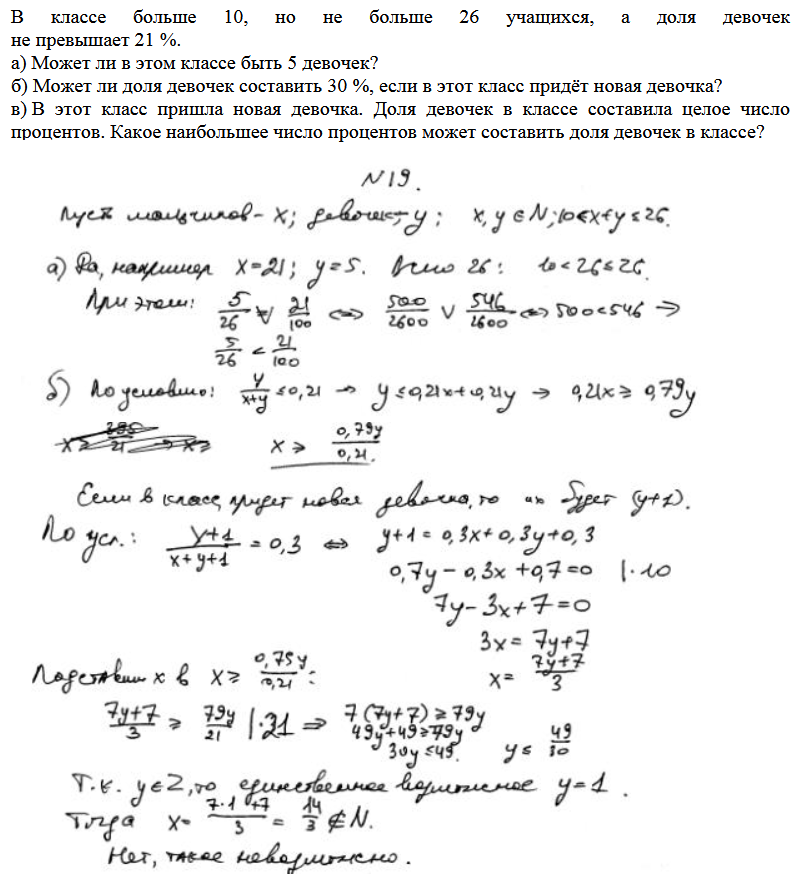 В классе больше 10, но не больше 26 учащихся, а доля девочек
не превышает 21 %.
а) Может ли в этом классе быть 5 девочек?
б) Может ли доля девочек составить 30 %, если в этот класс придёт новая девочка?
в) В этот класс пришла новая девочка. Доля девочек в классе составила целое число
процентов. Какое наибольшее число процентов может составить доля девочек в классе?
N19.
Пусть мальчиков – x; девочек – y; x, y ∈ N; 10 < x+y ≤ 26.
а) Да, например x=21; y=5. Всего 26: 10 < 26 ≤ 26.
При этом: 5/26 ∨ 21/100 ⇔ 500/2600 ∨ 546/2600 ⇔ 500 < 546 →
5/26 < 21/100
б) По условию: y/(x+y) ≤ 0,21 → y ≤ 0,21x+0,21y → 0,21x ≥ 0,79y
x ≥ 0,79y/0,21.
Если в класс придет новая девочка, то их будет (y+1).
По усл.: (y+1)/(x+y+1) = 0,3 ⇔ y+1 = 0,3x+0,3y+0,3
0,7y – 0,3x + 0,7 = 0 |·10
7y – 3x + 7 = 0
3x = 7y+7
x = (7y+7)/3
Подставим x в x ≥ 0,79y/0,21:
(7y+7)/3 ≥ 79y/21 |·21 ⇒ 7(7y+7) ≥ 79y
49y+49 ≥ 79y
30y ≤ 49. y ≤ 49/30
Т.к. y ∈ Z, то единственное возможное y = 1.
Тогда x = (7·1+7)/3 = 14/3 ∉ N.
Нет, такое невозможно.